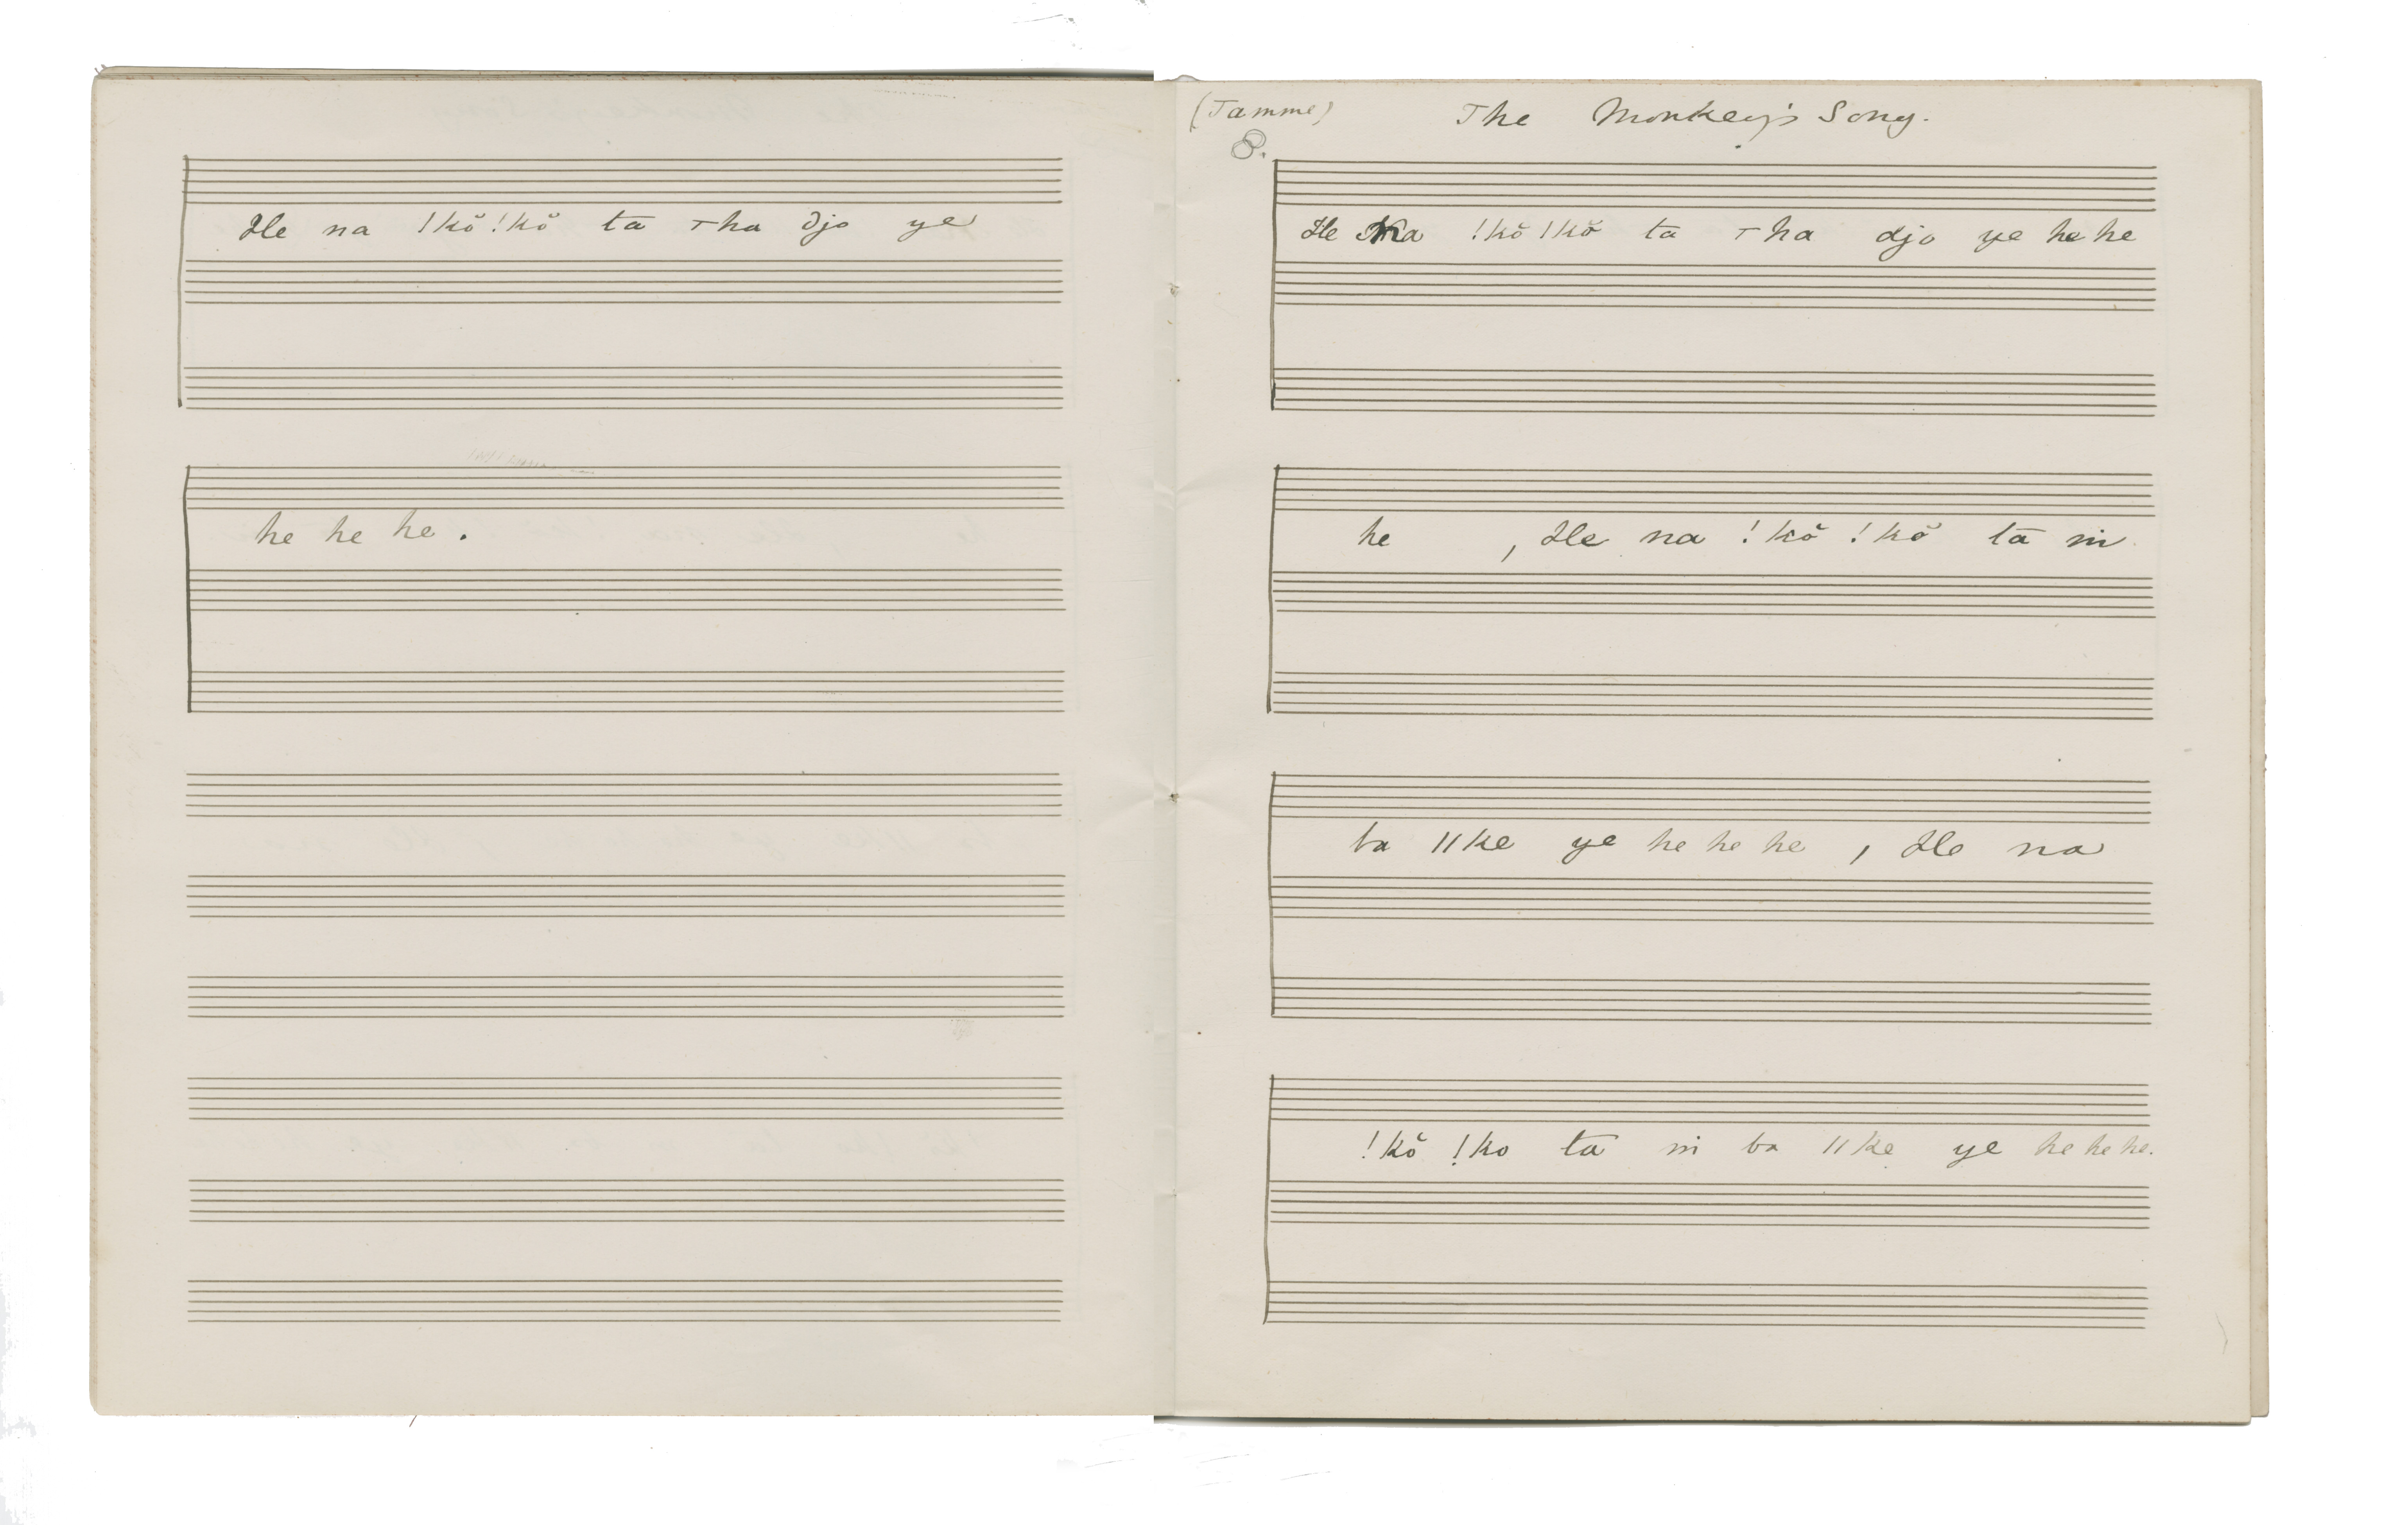 He na !kŏ !kŏ ta Tha djo ye
he he he.
(Tamme) The Monkey's Song.
8.
He Na !kŏ !kŏ ta Tha djo ye he he
he , He na !kŏ !kŏ tā ni
ba ǁke ye he he he , He na
!kŏ !ko tā ni ba ǁke ye he he he.